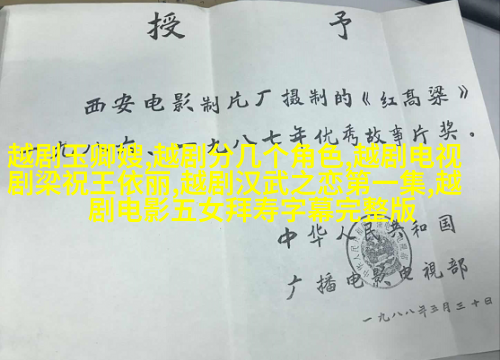 授 予
西安电影制片厂摄制的《红高粱》
一九八七年优秀故事片奖。
越剧玉卿嫂,越剧分几个角色,越剧电视
剧梁祝王依丽,越剧汉武之恋第一集,越
剧电影五女拜寿字幕完整版
中华人民共和国
广播电影电視部
一九八八年三月三十日